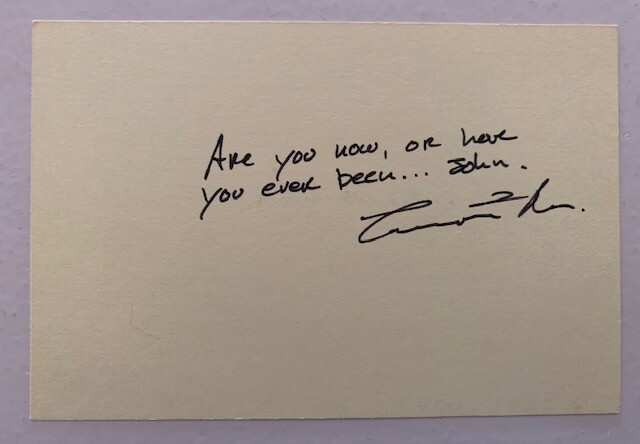 Are you now, or have
you ever been... John.